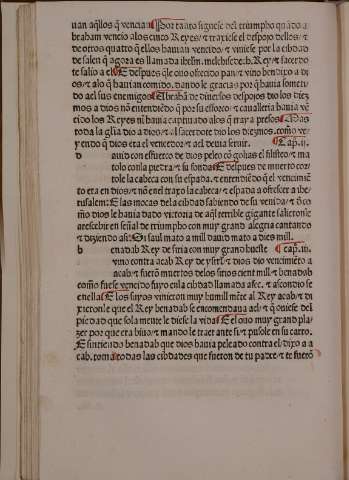 uan aq̃llos q̃ vencian Por tanto siguese del triumpho quãdo a
braham vencio alos cinco Reyes/ ⁊ trayxese el despojo dellos/ ⁊
de otros quatro q̃ ellos hauian vencido/ ⁊ viniese por la cibdad
de salen q̃ agora es llamada iherlm. melchisedech. Rey ⁊ sacerdo
te salio a el E despues q̃le ouo ofrecido pan ⁊ vino bendixo a di
os/ ⁊ alo q̃ hauian comido. dando le gracias por q̃ hauia someti
do ael sus enemigos Abrahã de diuersos despojos dio los diez
mos a dios nõ entendiẽdo q̃ por su esforço ⁊ caualleria hauia vẽ
cido los Reyes ni hauia captiuado alos q̃ traya presos Mas
toda la glĩa dio a dios/ ⁊ al sacerdote dio los diezmos. como ve
yendo q̃ dios era el vencedor ⁊ ael deuia seruir. Cap. ii.
d auid con esfuerço de dios peleo cõ golias el filisteo/ ⁊ ma
tolo con la piedra/ ⁊ su fonda E despues de muerto cor
tole la cabeça con su espada. ⁊ entendiẽdo q̃ el vencimiẽ
to era en dios/ ⁊ nõ en el. traxo la cabeça/ ⁊ espada a ofrescer a ihe
rusalem: E las moças de la cibdad sabiendo de su venida/ ⁊ de co
mo dios le hauia dado victoria de aq̃l terrible gigante salieronle
a rescebir en señal de triumpho con muy grand alegria cantando
⁊ diziendo asi: Si saul mato a mill dauid mato a dies mill.
b enadab Rey de siria con muy grand hueste Cap. iii.
vino contra acab Rey de ysrl/ ⁊ dios dio vencimiẽto a
acab/ ⁊ fuerõ muertos delos sirios cient mill/ ⁊ benadab
como fuese vencido fuyo en la cibdad llamada afec. ⁊ ascondio se
en ella E los suyos vinieron muy humill mẽte al Rey acab/ ⁊ di
xieron le que el Rey benadab se encomendaua ael/ ⁊ q̃ ouiese del
piedad que sola mente le diese la vida E el ouo muy grand pla
zer por que era biuo/ ⁊ mando le traer ante si/ ⁊ pusole en su carro.
E sintiendo benadab que dios hauia peleado contra el/ dixo a a
cab. toma todas las cibdades que fueron de tu padre/ ⁊ te fuerõ